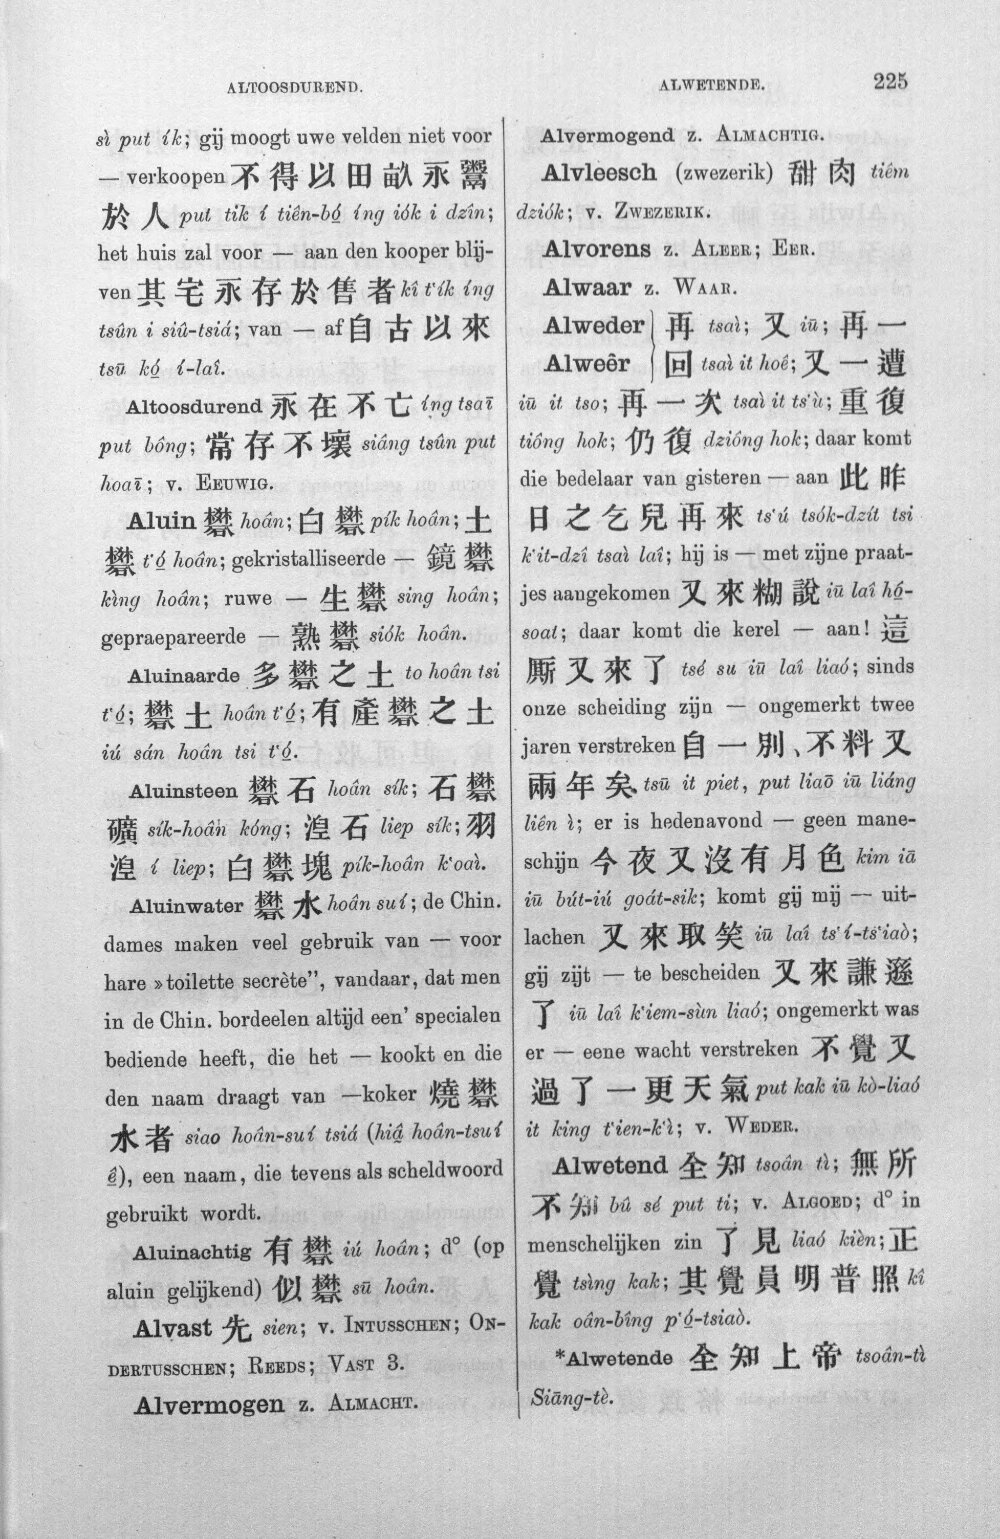 ALTOOSDUREND.
ALWETENDE.
225
sì put ík; gij moogt uwe velden niet voor
— verkoopen 不得以田畝永鬻
於人 put tik í tiên-bó̤ íng iók i dzîn;
het huis zal voor — aan den kooper blij-
ven 其宅永存於售者 kî t'ík íng
tsûn i siû-tsiá; van — af 自古以來
tsū kó̤ í-laî.
Altoosdurend 永在不亡 íng tsaī
put bông; 常存不壞 siâng tsûn put
hoaī; v. EEUWIG.
Aluin 礬 hoân; 白礬 pík hoân; 土
礬 t'ó̤ hoân; gekristalliseerde — 鏡礬
kìng hoân; ruwe — 生礬 sing hoân;
gepraepareerde — 熟礬 siók hoân.
Aluinaarde 多礬之土 to hoân tsi
t'ó̤; 礬土 hoân t'ó̤; 有產礬之土
iú sán hoân tsi t'ó̤.
Aluinsteen 礬石 hoân sík; 石礬
礦 sík-hoân kóng; 湼石 liep sík; 羽
湼 í liep; 白礬塊 pík-hoân k'oaì.
Aluinwater 礬水 hoân suí; de Chin.
dames maken veel gebruik van — voor
hare »toilette secrète”, vandaar, dat men
in de Chin. bordeelen altijd een’ specialen
bediende heeft, die het — kookt en die
den naam draagt van —koker 燒礬
水者 siao hoân-suí tsiá (hiâ̤ hoân-tsuí
ê̤), een naam, die tevens als scheldwoord
gebruikt wordt.
Aluinachtig 有礬 iú hoân; d° (op
aluin gelijkend) 似礬 sū hoân.
Alvast 先 sien; v. INTUSSCHEN; ON-
DERTUSSCHEN; REEDS; VAST 3.
Alvermogen z. ALMACHT.
Alvermogend z. ALMACHTIG.
Alvleesch (zwezerik) 甜肉 tiêm
dziók; v. ZWEZERIK.
Alvorens z. ALEER; EER.
Alwaar z. WAAR.
Alweder 再 tsaì; 又 iū; 再一
Alweêr 回 tsaì it hoê; 又一遭
iū it tso; 再一次 tsaì it ts'ù; 重復
tióng hok; 仍復 dzióng hok; daar komt
die bedelaar van gisteren — aan 此昨
日之乞兒再來 ts'ú tsók-dzít tsi
k'it-dzî tsaì laî; hij is — met zijne praat-
jes aangekomen 又來糊說 iū laî hô̤-
soat; daar komt die kerel — aan! 這
厮又來了 tsé su iū laî liaó; sinds
onze scheiding zijn — ongemerkt twee
jaren verstreken 自一別、不料又
兩年矣、 tsū it piet, put liaō iū liáng
liên ì; er is hedenavond — geen mane-
schijn 今夜又沒有月色 kim iā
iū bút-iú goát-sik; komt gij mij — uit-
lachen 又來取笑 iū laî ts'í-ts'iaò;
gij zijt — te bescheiden 又來謙遜
了 iū laî k'iem-sùn liaó; ongemerkt was
er — eene wacht verstreken 不覺又
過了一更天氣 put kak iū kò-liaó
it king t'ien-k'ì; v. WEDER.
Alwetend 全知 tsoân tì; 無所
不知 bû sé put ti; v. ALGOED; d° in
menschelijken zin 了見 liaó kièn; 正
覺 tsìng kak; 其覺員明普照 kî
kak oân-bîng p'ó̤-tsiaò.
*Alwetende 全知上帝 tsoân-tì
Siāng-tè.